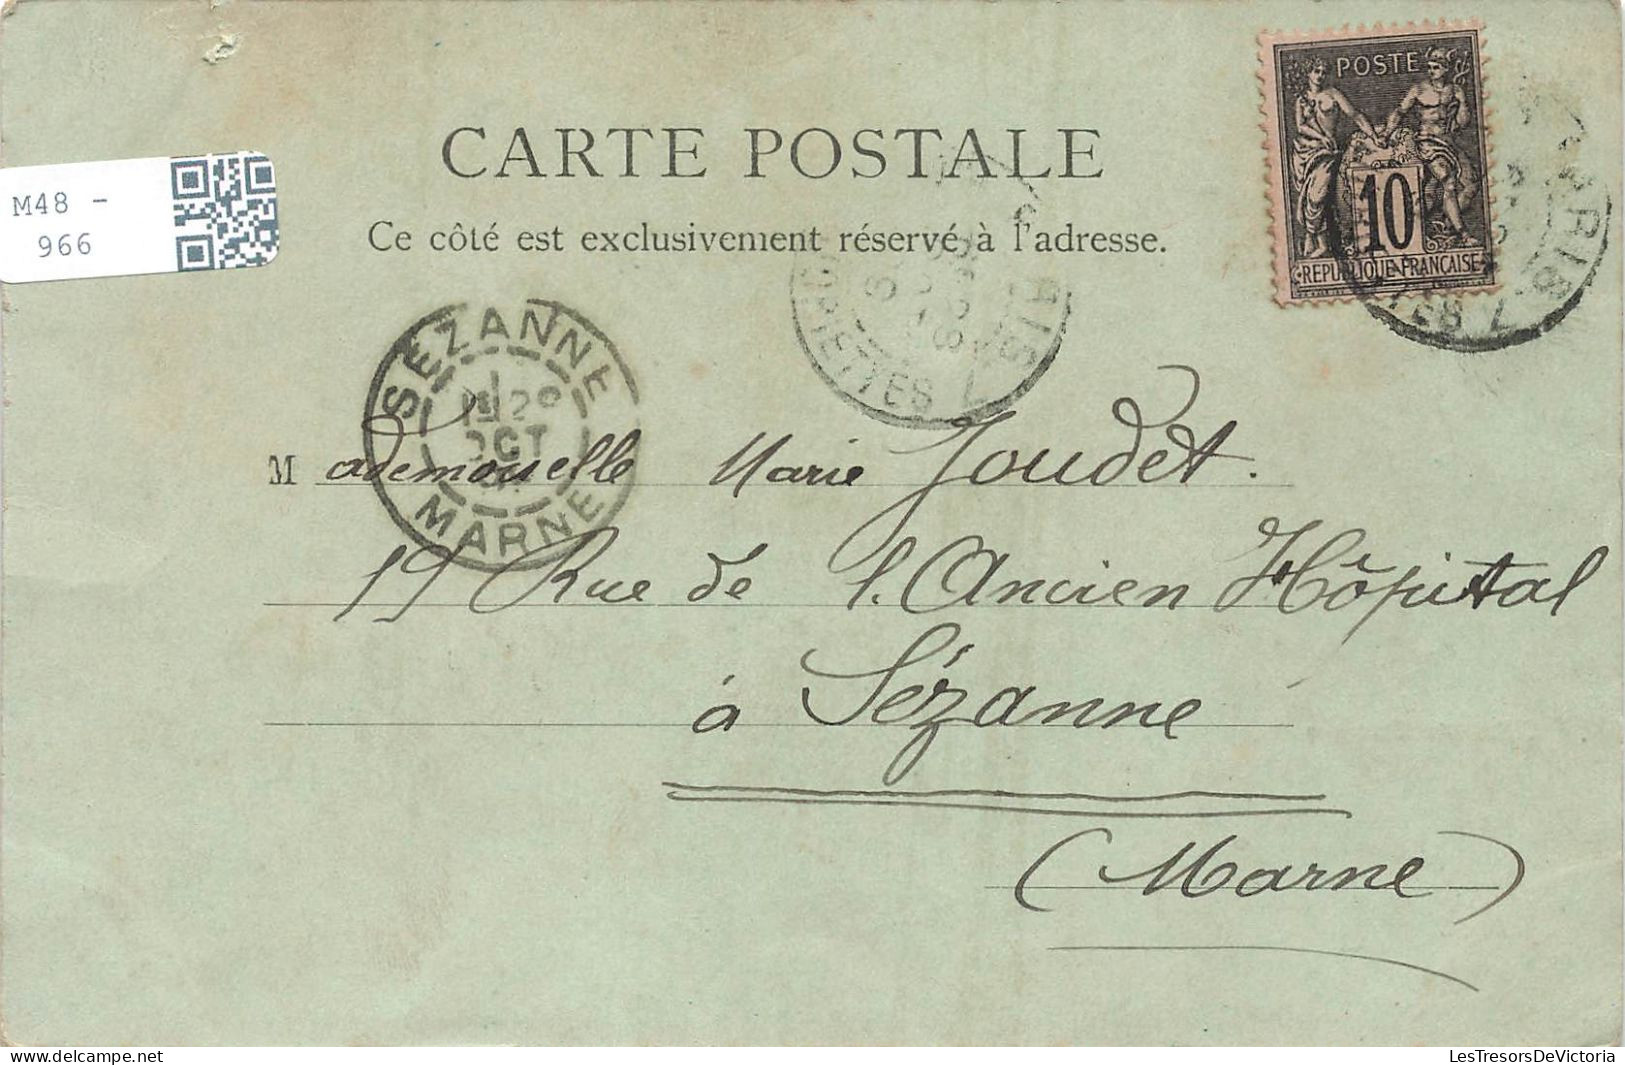 M48 -
966
CARTE POSTALE
Ce côté est exclusivement réservé à l'adresse.
POSTE
10
REPUBLIQUE FRANÇAISE
SÉZANNE
OCT
MARNE
Mademoiselle Marie Joudet.
19 Rue de l'Ancien Hôpital
à Sézanne
(Marne)
LesTresorsDeVictoria